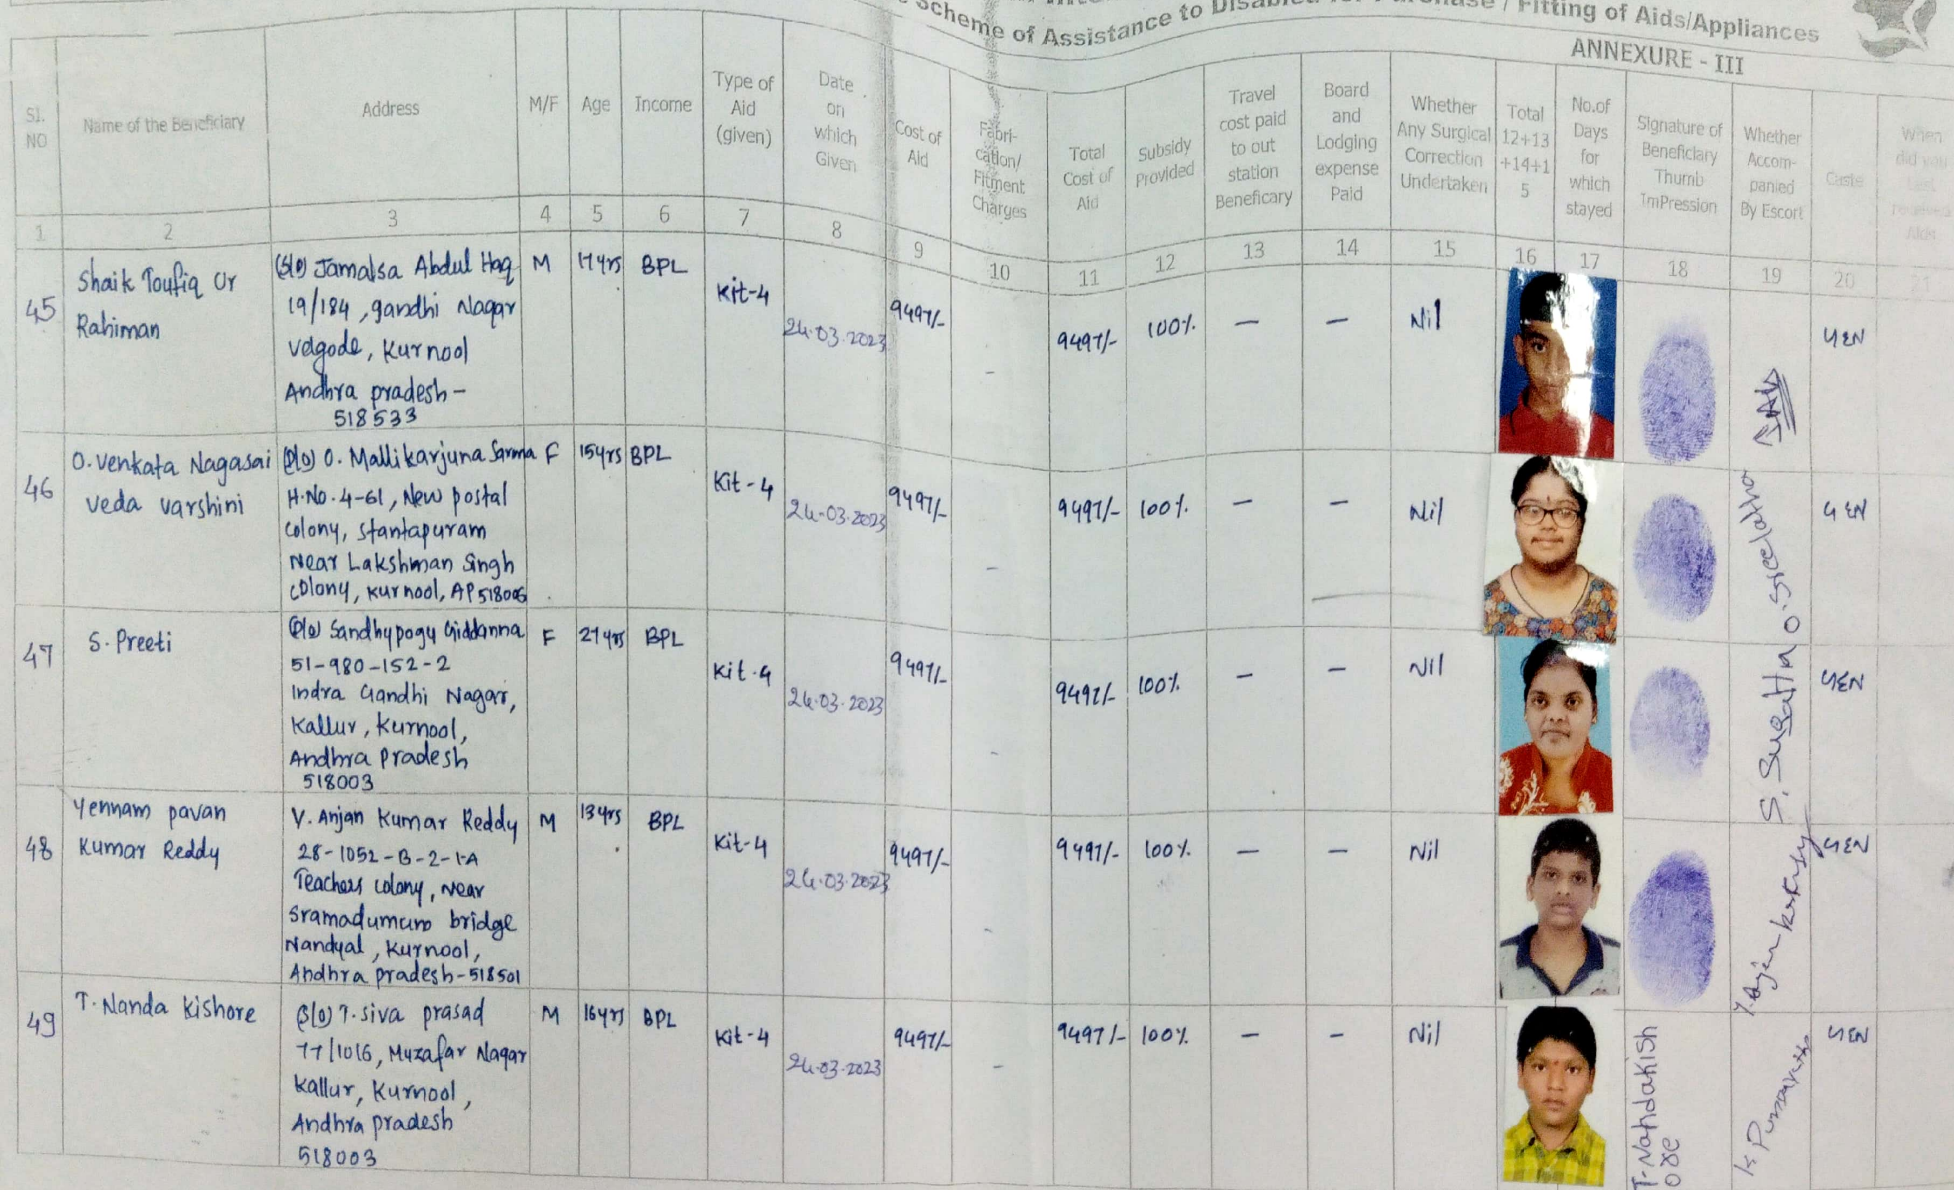 Scheme of Assistance to Disabled for Purchase / Fitting of Aids/Appliances
ANNEXURE - III
Sl. NO
Name of the Beneficiary
Address
M/F
Age
Income
Type of Aid (given)
Date on which Given
Cost of Aid
Fabri-cation/ Fitment Charges
Total Cost of Aid
Subsidy Provided
Travel cost paid to out station Beneficary
Board and Lodging expense Paid
Whether Any Surgical Correction Undertaken
Total 12+13 +14+1 5
No.of Days for which stayed
Signature of Beneficiary Thumb TmPression
Whether Accom-panied By Escort
Caste
When did you last received Aids
1 2 3 4 5 6 7 8 9 10 11 12 13 14 15 16 17 18 19 20 21
45
Shaik Toufiq Ur
Rahiman
(S/o) Jamalsa Abdul Haq
19/184, gandhi Nagar
velgode, Kurnool
Andhra pradesh -
518533
M 17yrs BPL Kit-4 24.03.2023 9497/- - 9497/- 100% — — Nil GEN
46
O. Venkata Nagasai
veda varshini
(D/o) O. Mallikarjuna Sarma
H.No. 4-61, New postal
colony, Stantapuram
Near Lakshman Singh
colony, Kurnool, AP 518006
F 15yrs BPL Kit-4 24-03-2023 9497/- - 9497/- 100% — — Nil O. Sreelatha GEN
47
S. Preeti
(D/o) Sandhypogu Giddanna
51-980-152-2
Indra Gandhi Nagar,
Kallur, Kurnool,
Andhra Pradesh
518003
F 21yrs BPL Kit-4 24.03.2023 9497/- - 9497/- 100% — — Nil S. Sujatha GEN
48
Yennam pavan
Kumar Reddy
Y. Anjan Kumar Reddy
28-1052-B-2-1-A
Teachers colony, Near
Sramadumum bridge
Nandyal, Kurnool,
Andhra pradesh-518501
M 13yrs BPL Kit-4 24.03.2023 9497/- - 9497/- 100% — — Nil GEN
49
T. Nanda Kishore
(S/o) T. siva prasad
77/1016, Muzafar Nagar
Kallur, Kurnool,
Andhra pradesh
518003
M 16yrs BPL Kit-4 24.03.2023 9497/- - 9497/- 100% — — Nil T. Nandakish ore GEN